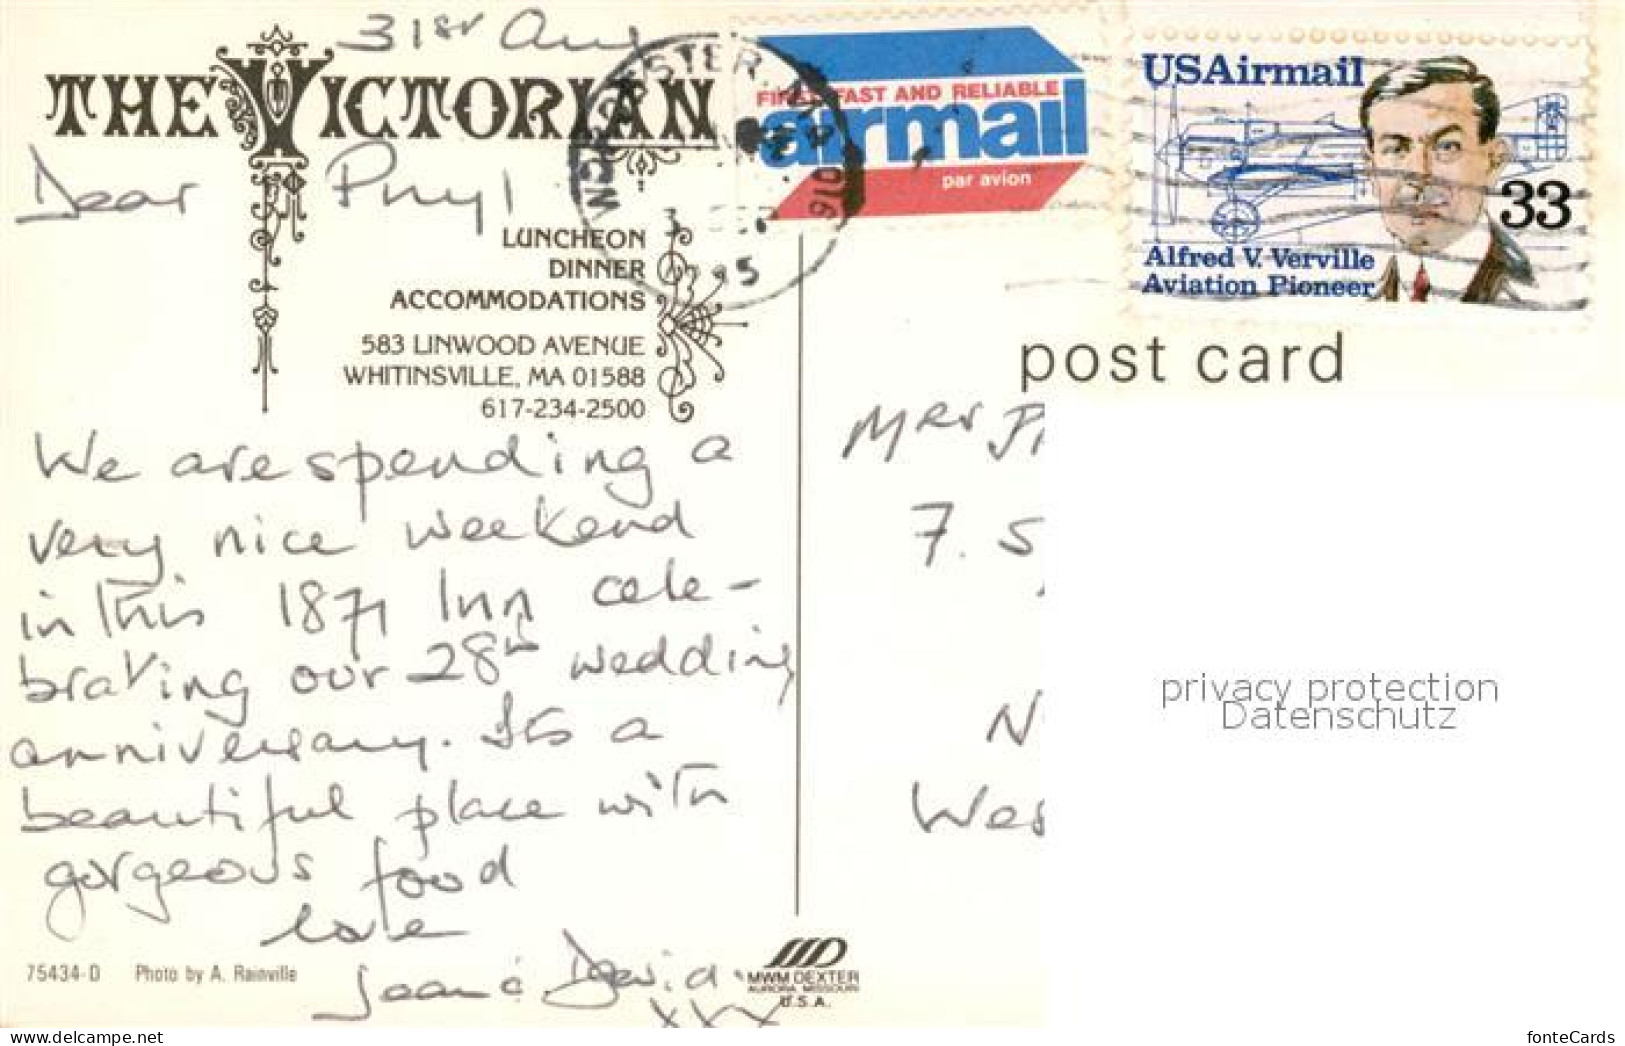 31st Aug
THE VICTORIAN
Dear Phyl
LUNCHEON
DINNER
ACCOMMODATIONS
583 LINWOOD AVENUE
WHITINSVILLE, MA 01588
617-234-2500
We are spending a
very nice weekend
in this 1871 Inn cele-
brating our 28th wedding
anniversary. Its a
beautiful place with
gorgeous food
love
Joan & David
xxx
75434-D Photo by A. Rainville
MWM DEXTER
AURORA MISSOURI
U.S.A.
FIRST FAST AND RELIABLE
airmail
par avion
USAirmail
33
Alfred V. Verville
Aviation Pioneer
post card
Mrs
7. S
N
Wes
privacy protection
Datenschutz
www.ansichtskarten-center.de
fonteCards